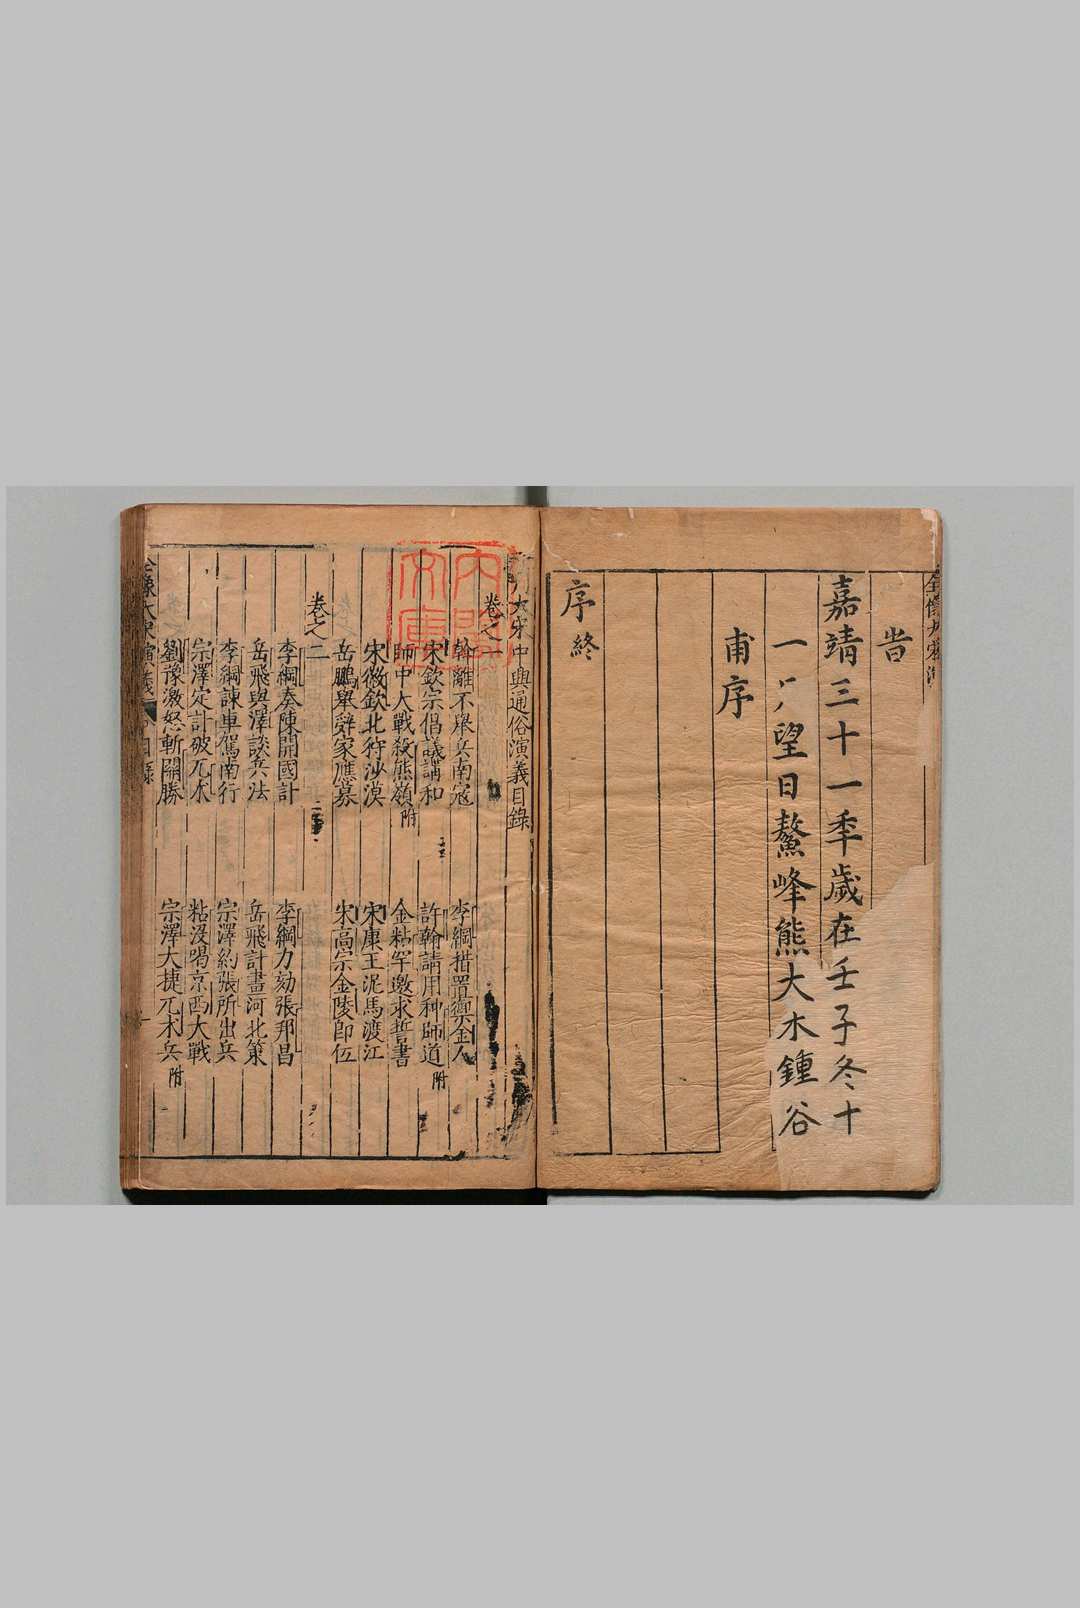 旹
嘉靖三十一季歲在壬子冬十
一月望日鰲峰熊大木鍾谷
甫序
序終
大宋中興通俗演義目錄
卷之一
斡離不舉兵南寇 李綱措置禦金人
宋欽宗倡議講和 許翰請用种師道 附
師中大戰殺熊嶺 附 金粘罕邀求誓書
宋徽欽北狩沙漠 宋康王泥馬渡江
岳鵬舉辭家應募 宋高宗金陵即位
卷之二
李綱奏陳開國計 李綱力劾張邦昌
岳飛與澤談兵法 岳飛計畫河北策
李綱諫車駕南行 宗澤約張所出兵
宗澤定計破兀朮 粘沒喝京西大戰
劉豫激怒斬關勝 宗澤大捷兀朮兵 附
內閣文庫